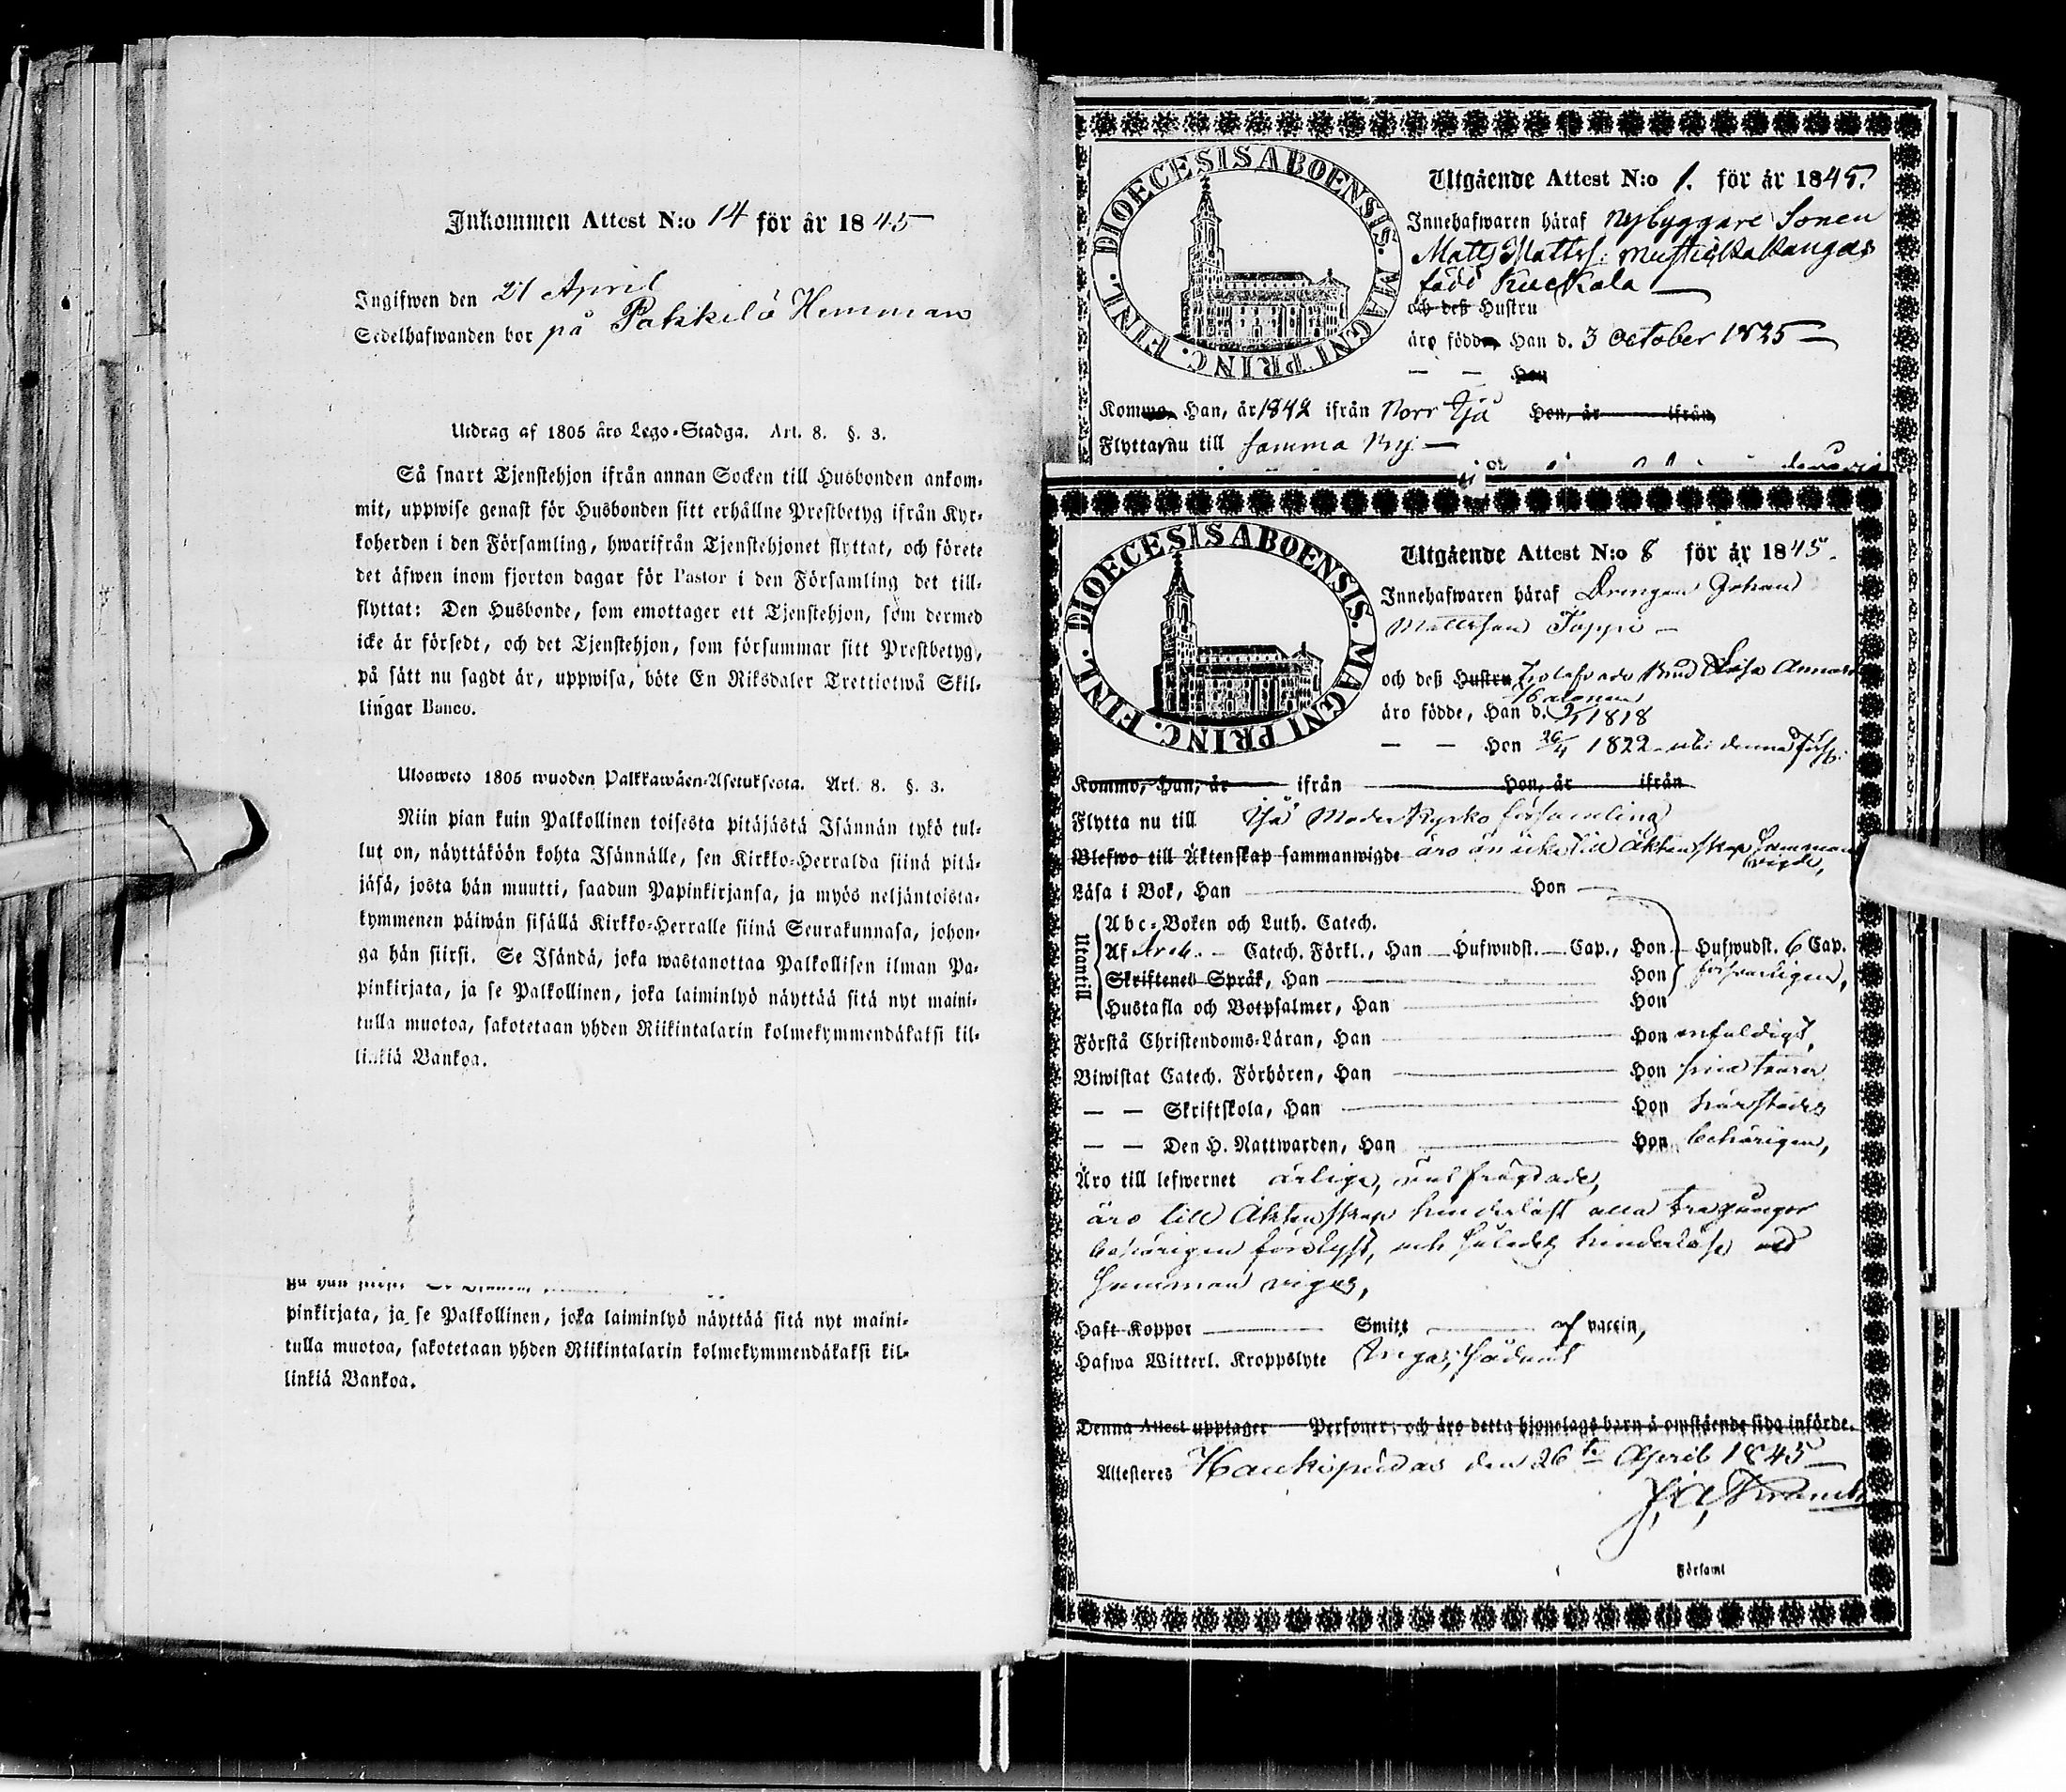 Inkommen Attest N:o 14 för år 1845
Ingifwen den 21 April
Sedelhafwanden bor på Pakkila Hemman
Utdrag af 1805 års Lego-Stadga. Art. 8. §. 3.
Så snart Tjenstehjon ifrån annan Socken till Husbonden ankom-
mit, uppwise genast för Husbonden sitt erhållne Prestbetyg ifrån Kyr-
koherden i den Församling, hwarifrån Tjenstehjonet flyttat, och förete
det äfwen inom fjorton dagar för Pastor i den Församling det till-
flyttat: Den Husbonde, som emottager ett Tjenstehjon, som dermed
icke är försedt, och det Tjenstehjon, som försummar sitt Prestbetyg,
på sätt nu sagdt är, uppwisa, böte En Riksdaler Trettiotwå Skil-
lingar Banco.
Uloswéto 1805 wuoden Palkkawäen-Asetuksesta. Art. 8. §. 3.
Niin pian kuin Palkollinen toisesta pitäjästä Isännän tykö tul-
lut on, näyttäköön kohta Isännälle, sen Kirkko-Herralda siinä pitä-
jäsä, josta hän muutti, saadun Papinkirjansa, ja myös neljäntoista-
kymmenen päiwän sisällä Kirkko-Herralle siinä Seurakunnasa, johon-
ga hän siirsi. Se Isändä, joka wastanottaa Palkollisen ilman Pa-
pinkirjata, ja se Palkollinen, joka laiminlyö näyttää sitä nyt maini-
tulla muotoa, sakotetaan yhden Riikintalarin kolmekymmendäkaksi kil-
linkiä Bankoa.
pinkirjata, ja se Palkollinen, joka laiminlyö näyttää sitä nyt maini-
tulla muotoa, sakotetaan yhden Riikintalarin kolmekymmendäkaksi kil-
linkiä Bankoa.
DIOECESIS ABOENSIS. MAGNI PRINC. FINL.
Utgående Attest N:o 1. för år 1845.
Innehafwaren häraf Nybyggare Sonen
Matts Mattss: Mustikkakangas
född Kuckala
och deß Hustru
äro födde, Han d. 3 October 1825
— — Hon
Kommo, Han, år 1842 ifrån Norr Ijå Hon, år ifrån
Flytta nu till samma Ky:
DIOECESIS ABOENSIS. MAGNI PRINC. FINL.
Utgående Attest N:o 8 för år 1845.
Innehafwaren häraf Drengen Johan
Mattsson Juppi
och deß Hustru trolofvade Brud Lisa Annas
äro födde, Han d. 1818
— — Hon 26/4 1822 uti denna förs.
Kommo, Han, år ifrån Hon, år ifrån
Flytta nu till Ijå Moder Kyrko församling
Blefwo till Äktenskap sammanwigde äro än icke till Äktenskap samman
vigde,
Läsa i Bok, Han Hon
Utantill
Abc-Boken och Luth. Catech.
Af Catech. Förkl., Han Hufwudst. Cap., Hon Hufwudst. 6 Cap.
Skriftenes Språk, Han Hon försvarligen,
Hustafla och Botpsalmer, Han Hon
Förstå Christendoms-Läran, Han Hon enfaldigt,
Biwistat Catech. Förhören, Han Hon sina
— — Skriftskola, Han Hon härstädes
— — Den H. Nattwarden, Han Hon behörigen,
Äro till lefwernet ärlige, väl frägdade,
äro till Äktenskap hinderlöst alla tre gånger
behörigen förelyst, och således hinderlöse att
samman vigas,
Haft Koppor Smitt af vaccin,
Hafwa Witterl. Kroppslyte
Denna Attest upptager Personer; och äro detta hjonelags barn å omstående sida införde.
Attesteres Haukipudas den 26te April 1845
Församl